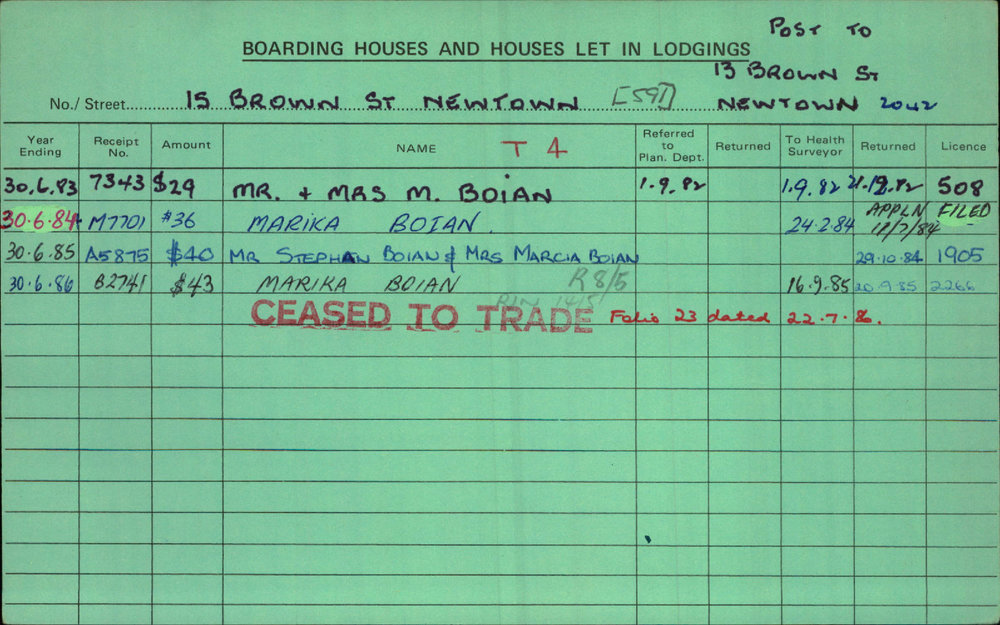 POST TO
BOARDING HOUSES AND HOUSES LET IN LODGINGS
13 BROWN ST
No./ Street 15 BROWN ST NEWTOWN [591] NEWTOWN 2042
Year Ending Receipt No. Amount NAME T 4 Referred to Plan. Dept. Returned To Health Surveyor Returned Licence
30.6.83 7343 $29 MR. + MRS M. BOIAN 1.9.82 1.9.82 21.12.82 508
30.6.84 M7701 $36 MARIKA BOIAN. 24.2.84 APPLN 12/7/84 FILED
30.6.85 A5875 $40 MR STEPHAN BOIAN & MRS MARCIA BOIAN 29.10.84 1905
30.6.86 B2741 $43 MARIKA BOIAN R 8/5 16.9.85 20.9.85 2266
14/5
CEASED TO TRADE Folio 23 dated 22.7.86.